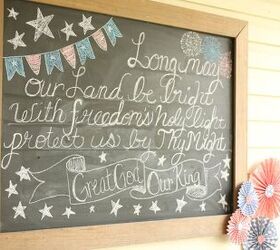 Long may
our Land be bright
With freedom's holy light
protect us by Thy Might
Great God Our King